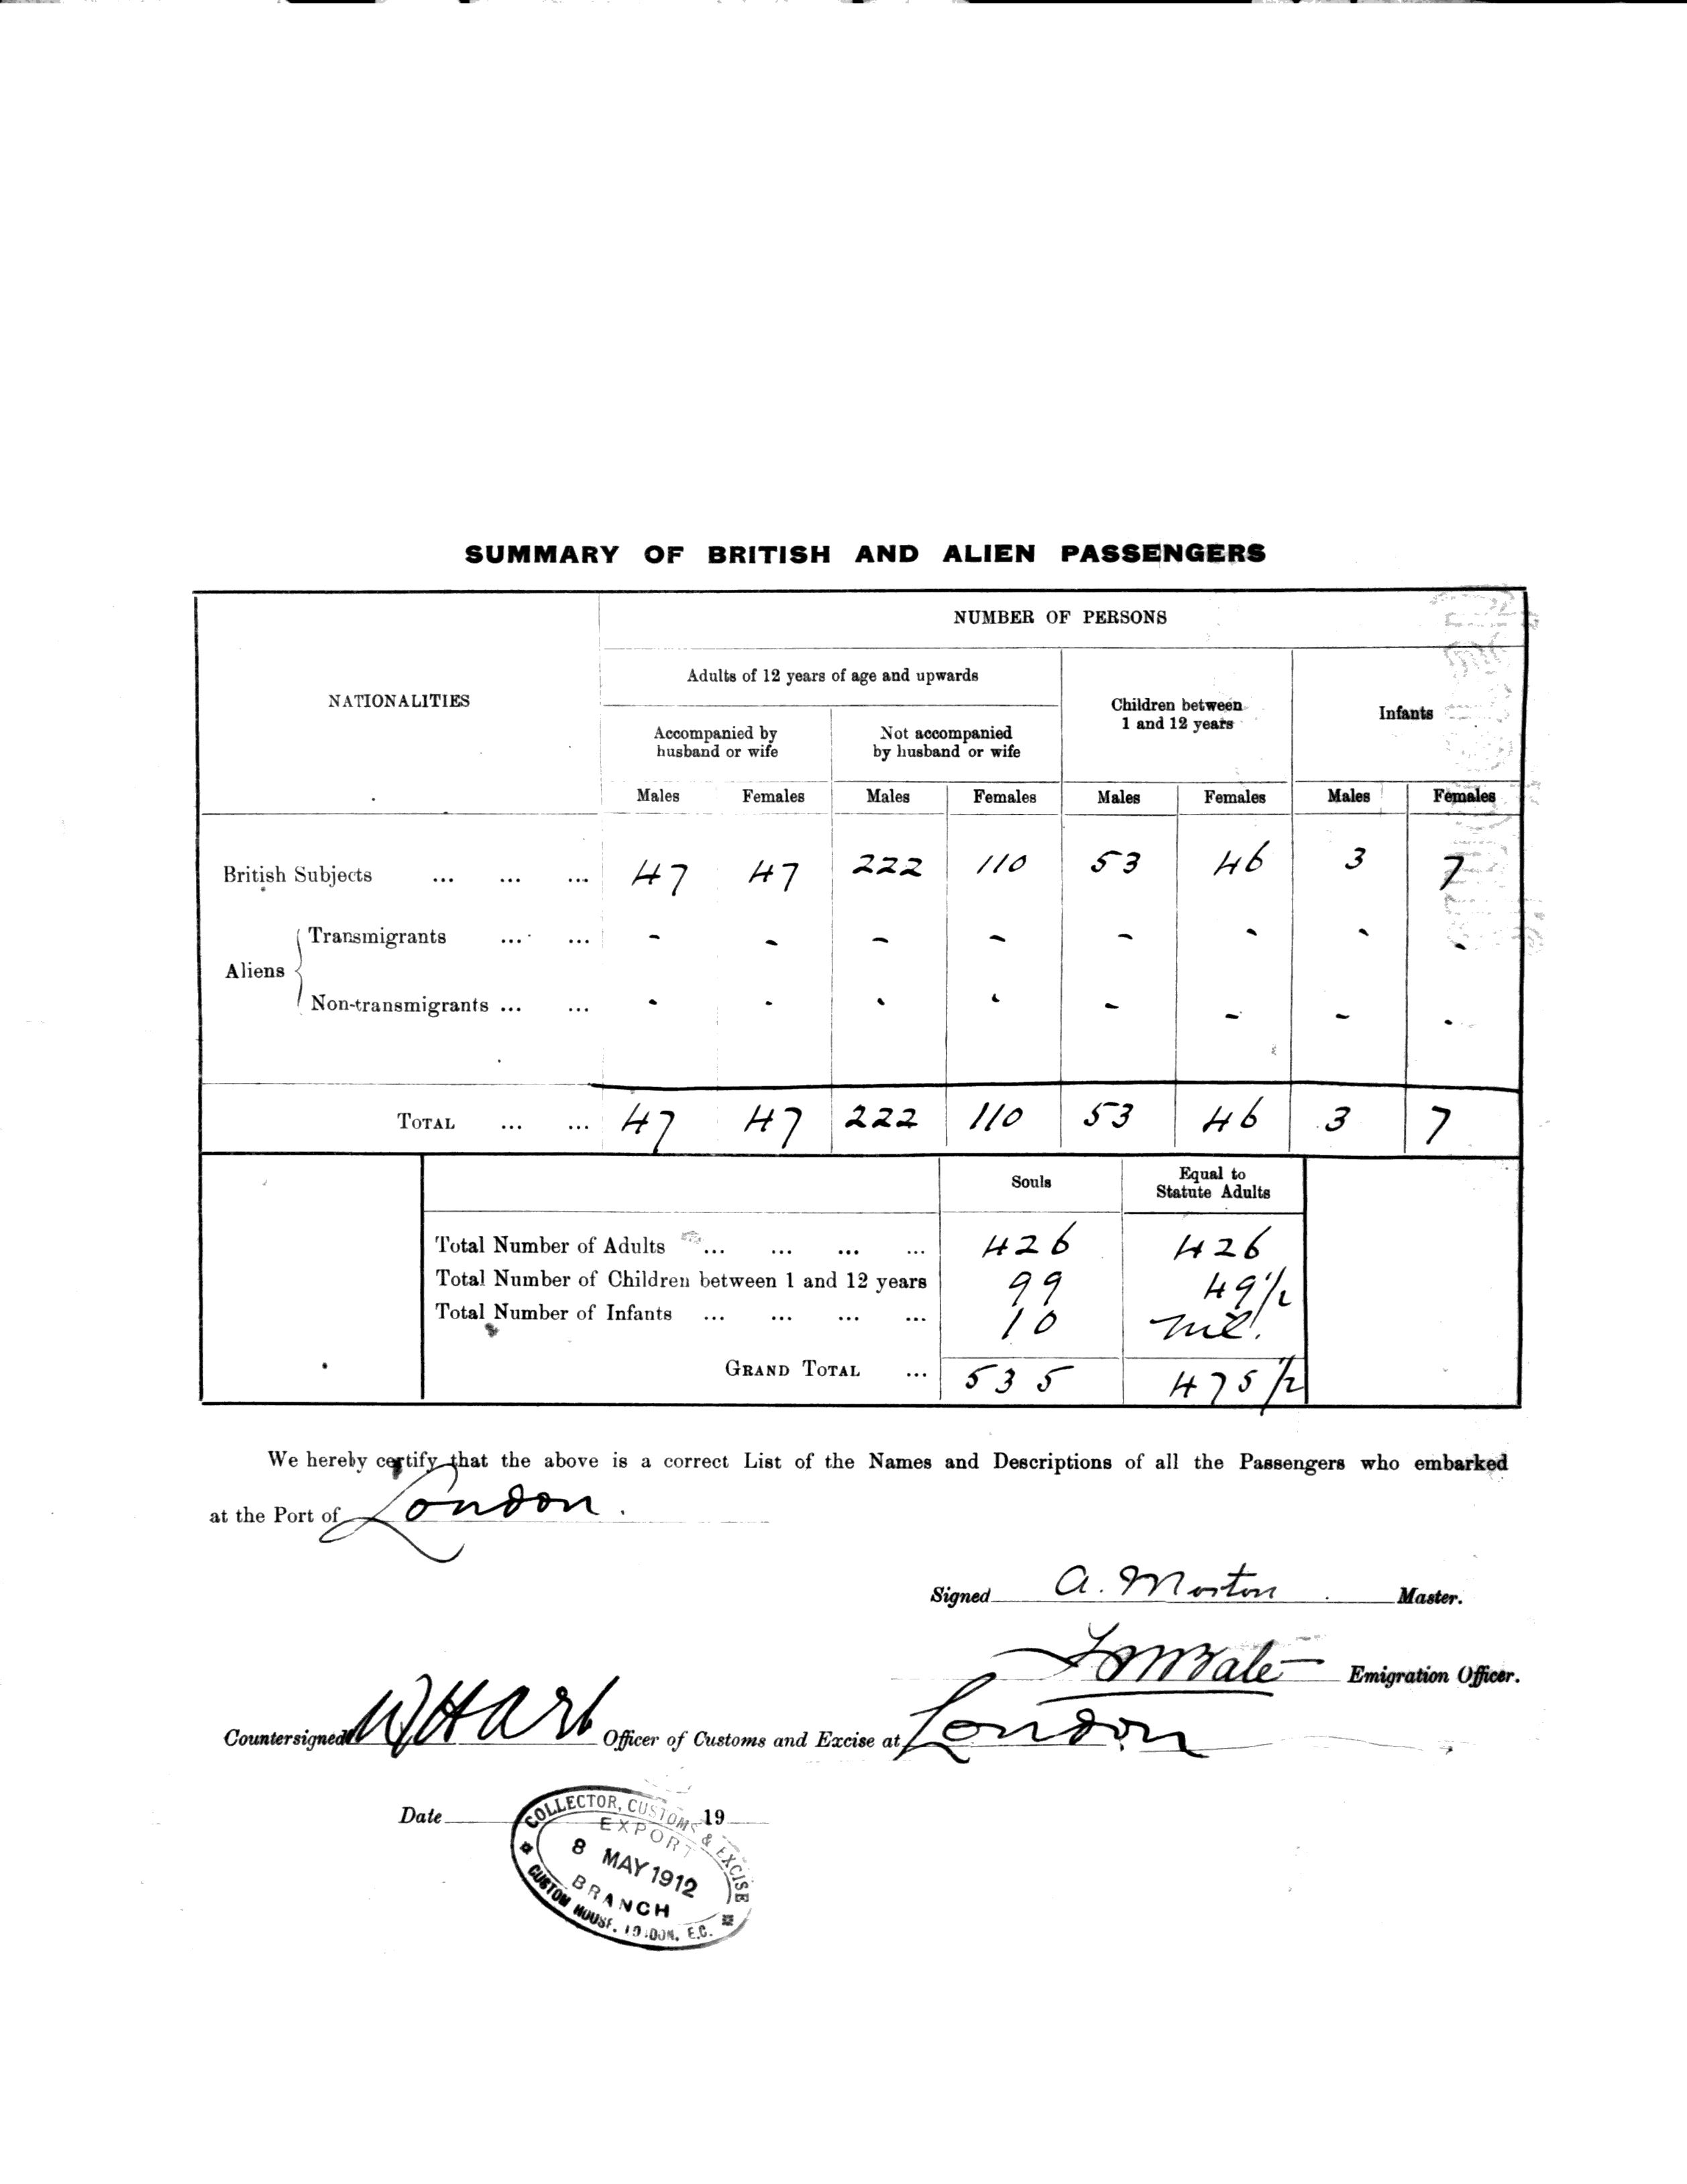 SUMMARY OF BRITISH AND ALIEN PASSENGERS
NATIONALITIES
NUMBER OF PERSONS
Adults of 12 years of age and upwards
Children between
1 and 12 years
Infants
Accompanied by
husband or wife
Not accompanied
by husband or wife
Males Females Males Females Males Females Males Females
British Subjects ... ... ... 47 47 222 110 53 46 3 7
Aliens
Transmigrants ... ... - - - - - - - -
Non-transmigrants ... ... - - - - - - - -
TOTAL ... ... 47 47 222 110 53 46 3 7
Souls
Equal to
Statute Adults
Total Number of Adults ... ... ... ... 426 426
Total Number of Children between 1 and 12 years 99 49 1/2
Total Number of Infants ... ... ... ... 10 nil.
GRAND TOTAL ... 535 475 1/2
We hereby certify that the above is a correct List of the Names and Descriptions of all the Passengers who embarked
at the Port of London.
Signed A. Morton Master.
Emigration Officer.
Countersigned W Hart Officer of Customs and Excise at London
Date 19
COLLECTOR, CUSTOMS & EXCISE
EXPORT
8 MAY 1912
BRANCH
CUSTOM HOUSE, LONDON, E.C.